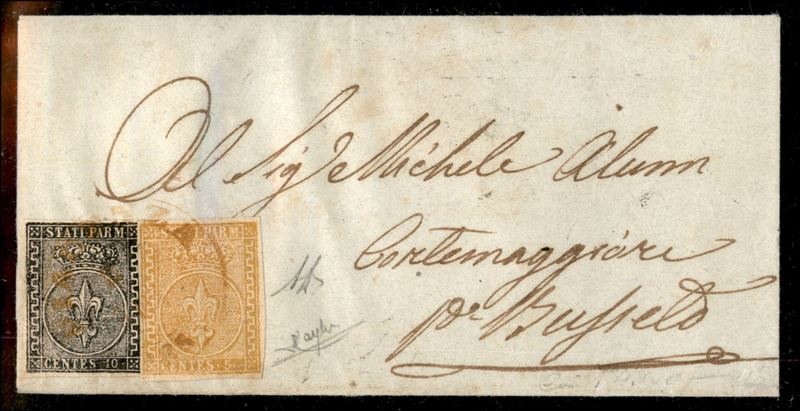 Al Sig.e Michele Alunni
Cortemaggiore
per Busseto
STATI PARM
CENTES 10
STATI PARM
CENTES 5